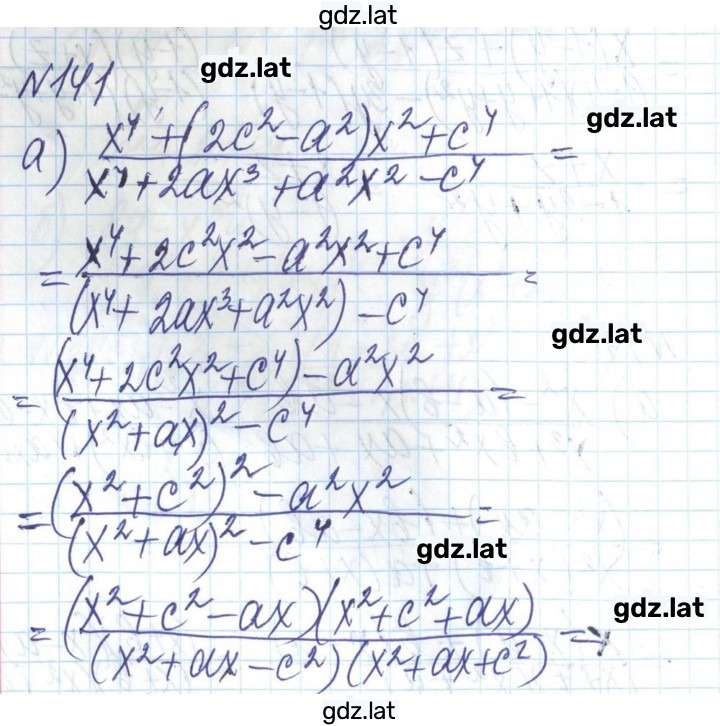 gdz.lat
gdz.lat
№141
gdz.lat
а) (x⁴+(2c²-a²)x²+c⁴)/(x⁴+2ax³+a²x²-c⁴) =
= (x⁴+2c²x²-a²x²+c⁴)/((x⁴+2ax³+a²x²)-c⁴) =
gdz.lat
= ((x⁴+2c²x²+c⁴)-a²x²)/((x²+ax)²-c⁴) =
= ((x²+c²)²-a²x²)/((x²+ax)²-c⁴) =
gdz.lat
gdz.lat
= ((x²+c²-ax)(x²+c²+ax))/((x²+ax-c²)(x²+ax+c²)) =
gdz.lat